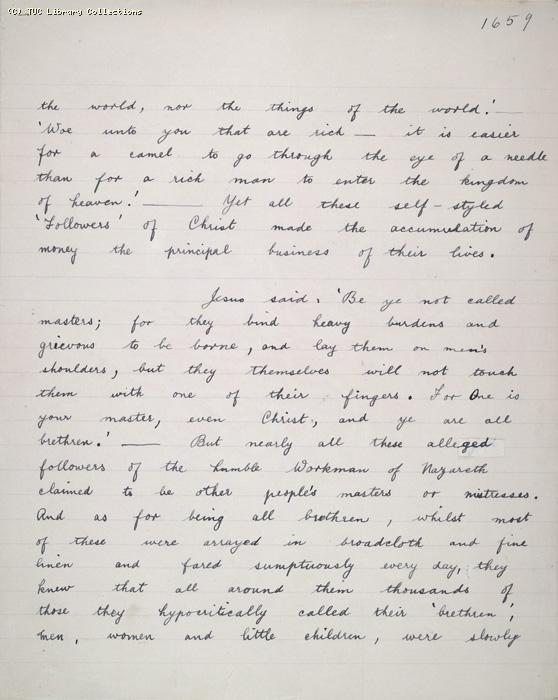 (C) TUC Library Collections
1659
the world, nor the things of the world.' —
'Woe unto you that are rich — it is easier
for a camel to go through the eye of a needle
than for a rich man to enter the kingdom
of heaven.' —— Yet all these self-styled
'Followers' of Christ made the accumulation of
money the principal business of their lives.
Jesus said: 'Be ye not called
masters; for they bind heavy burdens and
grievous to be borne, and lay them on men's
shoulders, but they themselves will not touch
them with one of their fingers. For One is
your master, even Christ, and ye are all
brethren.' — But nearly all these alleged
followers of the humble Workman of Nazareth
claimed to be other people's masters or mistresses.
And as for being all brethren, whilst most
of these were arrayed in broadcloth and fine
linen and fared sumptuously every day, they
knew that all around them thousands of
those they hypocritically called their 'brethren',
men, women and little children, were slowly